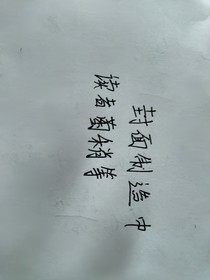 封面制造中
读者菌稍等